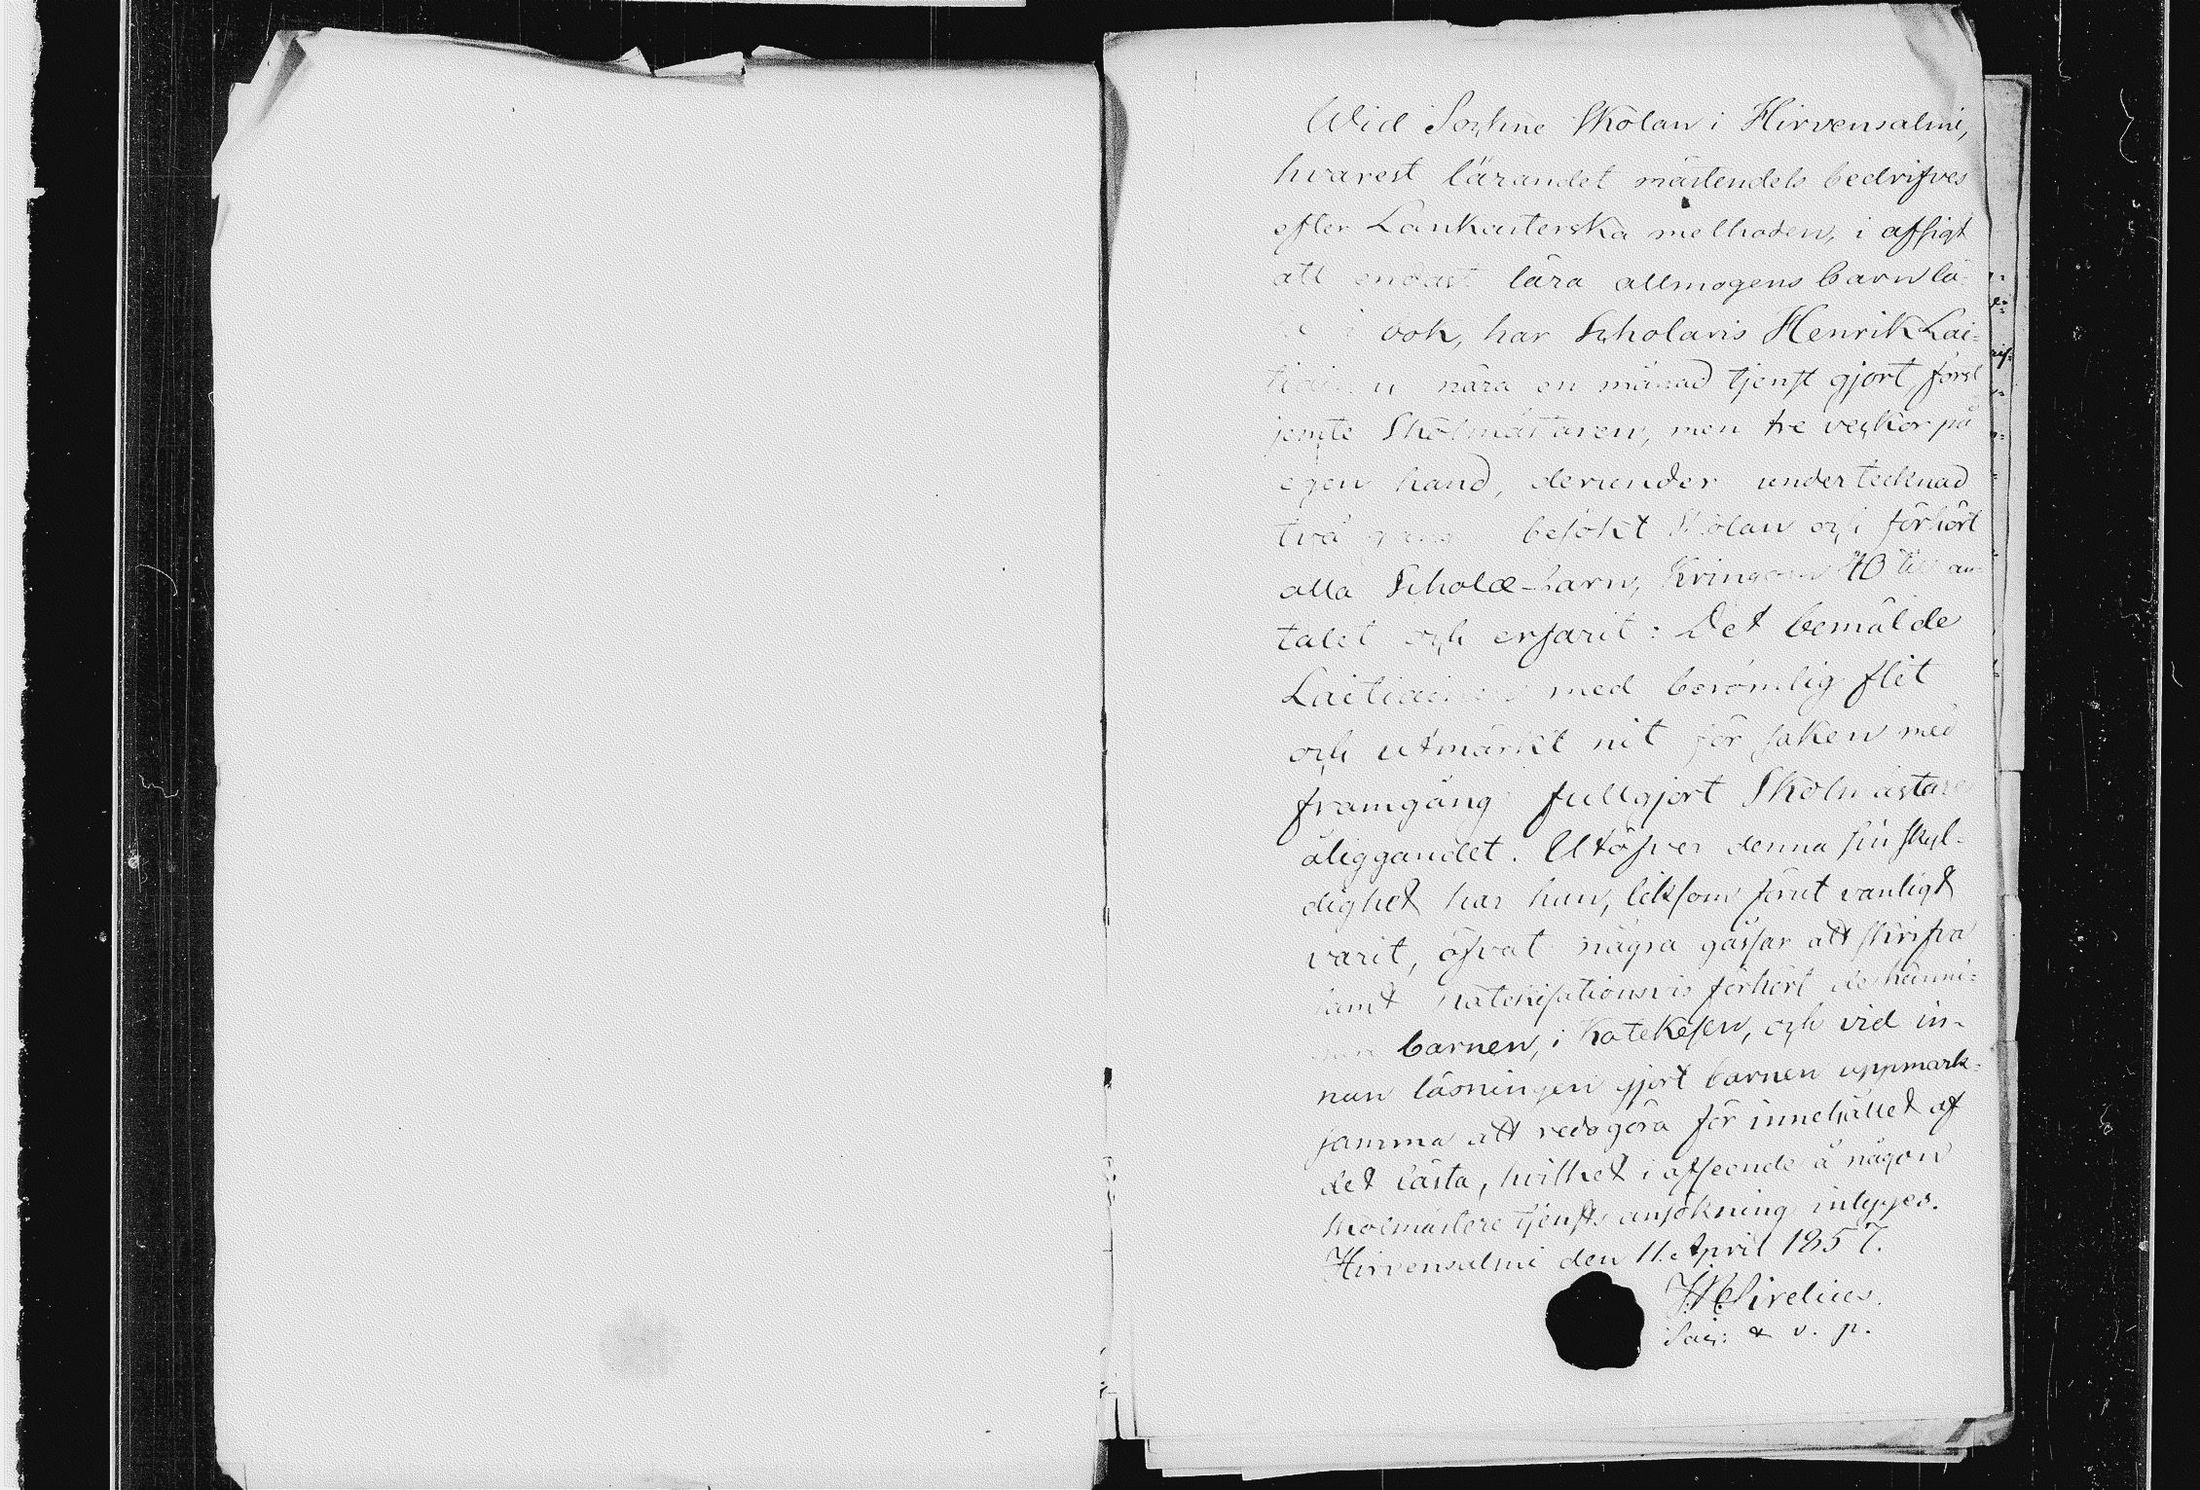 Wid Sockne Skolan i Hirvensalmi,
hvarest lärandet mästendels bedrifves
efter Lankasterska methoden, i afsigt
att endast lära allmogens barn lä-
i bok, har Scholaris Henrik Lai-
nära en månad tjenst gjort, först
jemte Skolmästaren, men tre veckor på
egen hand, derunder undertecknad
två besökt Skolan och förhört
alla Scholæ-barn, kringom 40 till an-
talet och erfarit: Det bemälde
med berömlig flit
och utmärkt nit för saken med
framgång fullgjort Skolmästare
åliggandet. Utöfver denna sin skyl-
dighet har han, liksom förut vanligt
varit, öfvat några gåssar att skrifva
samt katekisationsvis förhört
barnen, i Katekesen, och vid in-
nan läsningen gjort barnen uppmärk-
samma att redogöra för innehållet af
det lästa, hvilket i afseende å någon
Skolmästare tjensts ansökning intyges.
Hirvensalmi den 11. April 1857.
Sirelius.
Sac: & v. p.